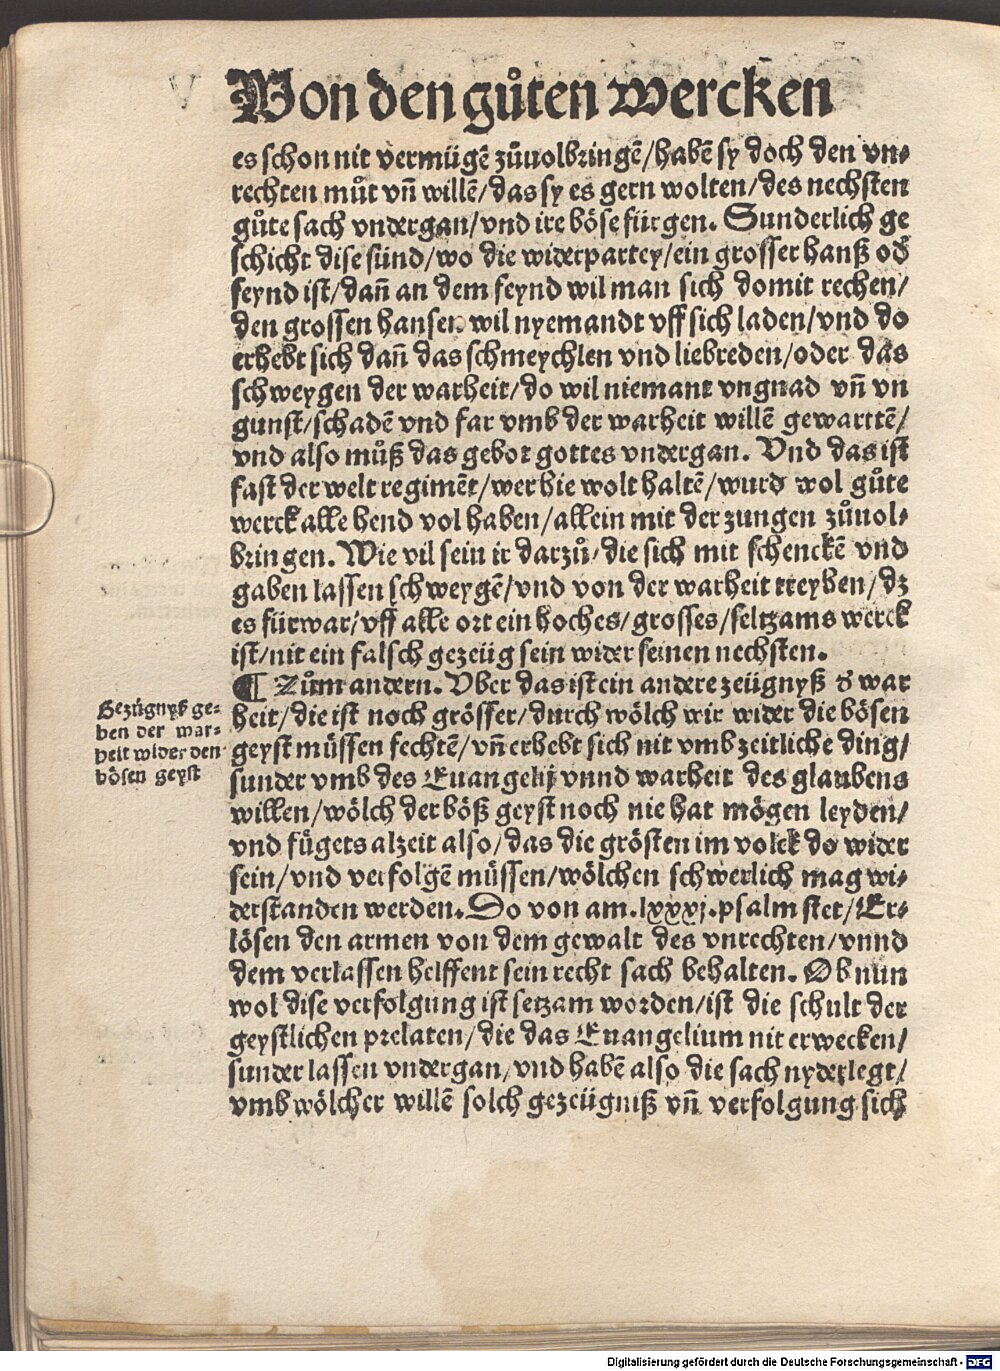 Von den gůten wercken
es schon nit vermügē zůuolbringē/habē sy doch den vn⸗
rechten můt vñ willē/das sy es gern wolten/des nechsten
gůte sach vndergan/vnd ire böse fürgen. Sunderlich ge
schicht dise sünd/wo die widerpartey/ein grosser hanß oď
feynd ist/dañ an dem feynd wil man sich domit rechen/
den grossen hansen wil nyemandt vff sich laden/vnd do
erhebt sich dañ das schmeychlen vnd liebreden/oder das
schweygen der warheit/do wil niemant vngnad vñ vn
gunst/schadē vnd far vmb der warheit willē gewarttē/
vnd also můß das gebot gottes vndergan. Vnd das ist
fast der welt regimēt/wer hie wolt haltē/wurd wol gůte
werck alle hend vol haben/allein mit der zungen zůuol⸗
bringen. Wie vil sein ir darzů/die sich mit schenckē vnd
gaben lassen schweygē/vnd von der warheit treyben/dz
es fürwar/vff alle ort ein hoches/grosses/seltzams werck
ist/nit ein falsch gezeüg sein wider seinen nechsten.
¶ Zům andern. Vber das ist ein andere zeügnyß ď war
heit/die ist noch grösser/durch wölch wir wider die bösen
geyst müssen fechtē/vñ erhebt sich nit vmb zeitliche ding/
sunder vmb des Euangelij vnnd warheit des glaubens
willen/wölch der böß geyst noch nie hat mögen leyden/
vnd fügets alzeit also/das die grösten im volck do wider
sein/vnd verfolgē müssen/wölchen schwerlich mag wi⸗
derstanden werden. Do von am .lxxxj. psalm stet/Er⸗
lösen den armen von dem gewalt des vnrechten/vnnd
dem verlassen helffent sein recht sach behalten. Ob nun
wol dise verfolgung ist setzam worden/ist die schult der
geystlichen prelaten/die das Euangelium nit erwecken/
sunder lassen vndergan/vnd habē also die sach nyderlegt/
vmb wölcher willē solch gezeügniß vñ verfolgung sich
Gezügnyß ge⸗
ben der war⸗
heit wider den
bösen geyst
Digitalisierung gefördert durch die Deutsche Forschungsgemeinschaft - DFG